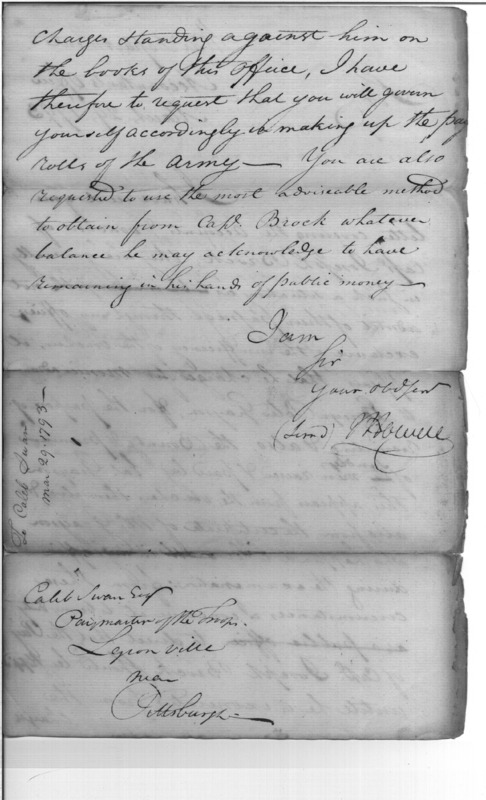 Charges standing against him on
the books of this office, I have
therefore to request that you will govern
yourself accordingly in making up the pay
rolls of the Army — You are also
requested to use the most adviseable method
to obtain from Capt. Brock whatever
balance he may acknowledge to have
remaining in his hands of public money —
I am
Sir
Your Obd Servt
(Signd) J Howell
To Caleb Swan
Mar 29. 1793 —
Caleb Swan Esq
Paymaster of the Troops.
Legion ville
near
Pittsburgh —